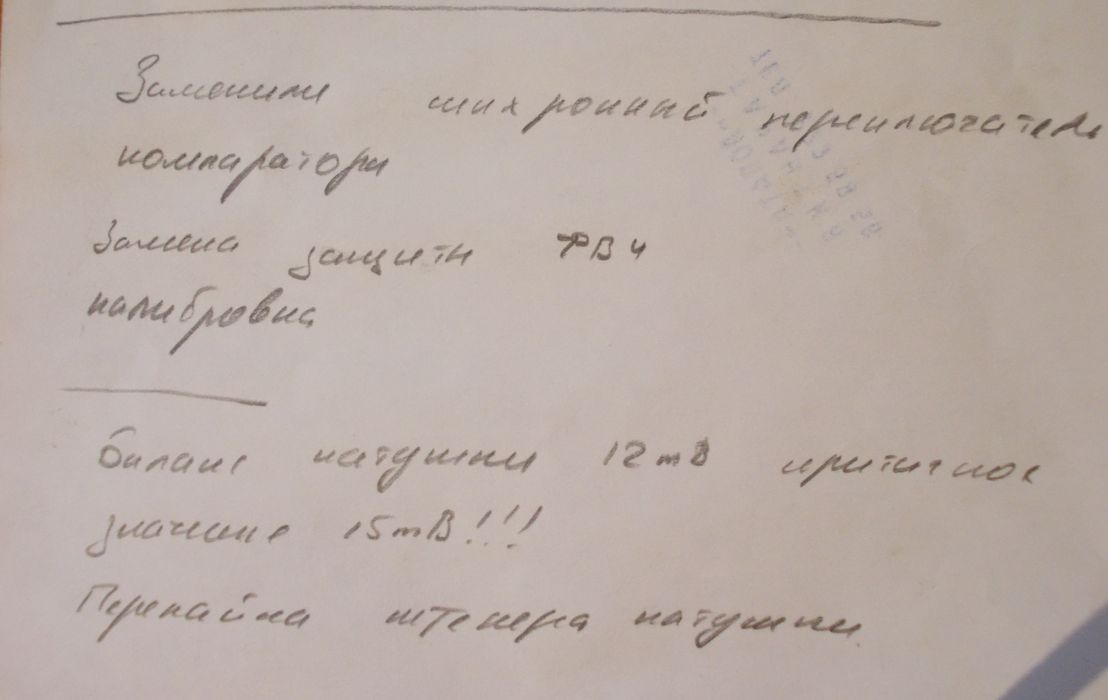 Заменили синхронный переключатель
компаратора
Замена защиты РВ4
калибровка
баланс катушки 12mB критичное
значение 15mB!!!
Перепайка штекера катушки